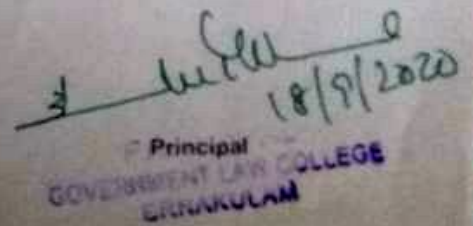 18/9/2020
Principal
GOVERNMENT LAW COLLEGE
ERNAKULAM